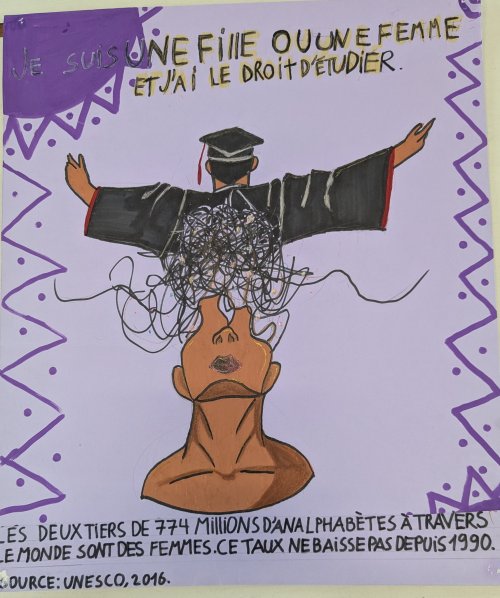 JE SUIS UNE FIllE OU UNE FEMME
ET J'AI LE DROIT D'ÉTUDIER.
LES DEUX TIERS DE 774 MILLIONS D'ANALPHABÈTES À TRAVERS
LE MONDE SONT DES FEMMES. CE TAUX NE BAISSE PAS DEPUIS 1990.
SOURCE: UNESCO, 2016.